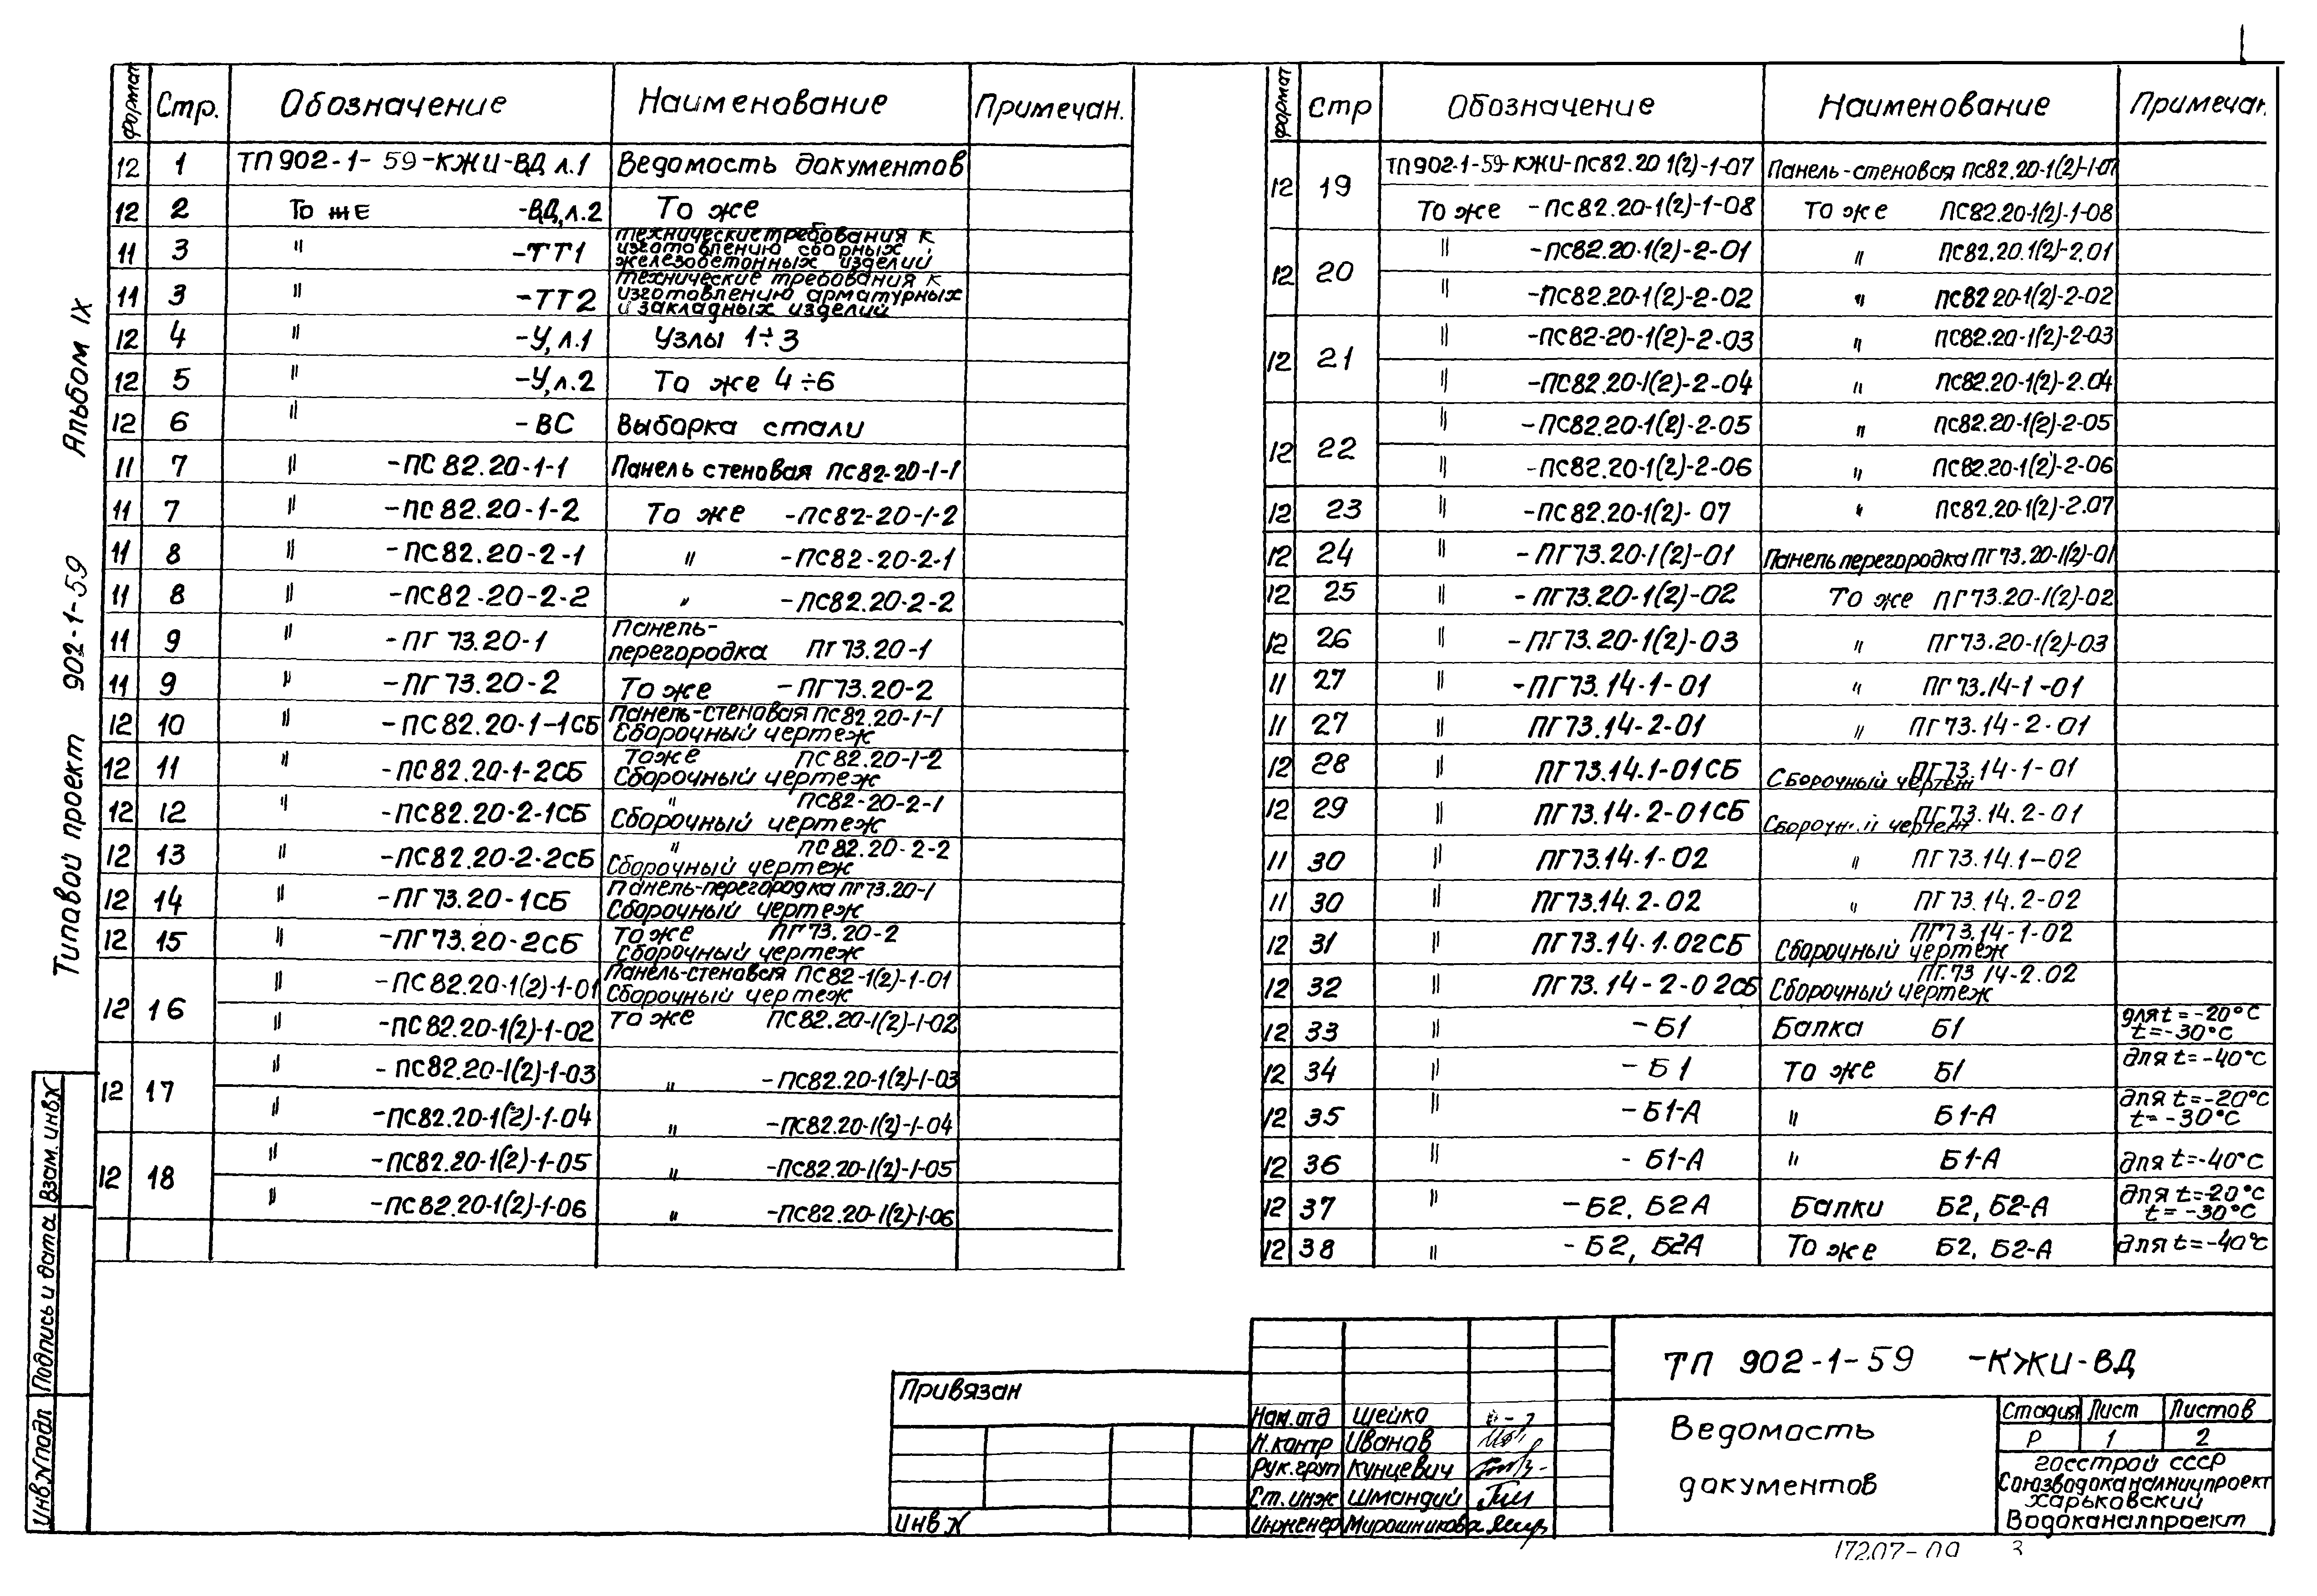 Типовой проект 902-1-59 Альбом IX
Формат Стр. Обозначение Наименование Примечан.
12 1 ТП902-1-59-КЖИ-ВД л.1 Ведомость документов
12 2 То же -ВД,л.2 То же
11 3 " -ТТ1 Технические требования к
изготовлению сборных
железобетонных изделий
11 3 " -ТТ2 Технические требования к
изготовлению арматурных
и закладных изделий
12 4 " -У,л.1 Узлы 1÷3
12 5 " -У,л.2 То же 4÷6
12 6 " -ВС Выборка стали
11 7 " -ПС82.20-1-1 Панель стеновая ПС82-20-1-1
11 7 " -ПС82.20-1-2 То же -ПС82-20-1-2
11 8 " -ПС82.20-2-1 " -ПС82-20-2-1
11 8 " -ПС82-20-2-2 " -ПС82.20-2-2
11 9 " -ПГ73.20-1 Панель-
перегородка ПГ73.20-1
11 9 " -ПГ73.20-2 То же -ПГ73.20-2
12 10 " -ПС82.20-1-1СБ Панель-стеновая ПС82.20-1-1
Сборочный чертеж
12 11 " -ПС82.20-1-2СБ то же ПС82.20-1-2
Сборочный чертеж
12 12 " -ПС82.20-2-1СБ " ПС82-20-2-1
Сборочный чертеж
12 13 " -ПС82.20-2-2СБ " ПС82.20-2-2
Сборочный чертеж
12 14 " -ПГ73.20-1СБ Панель-перегородка ПГ73.20-1
Сборочный чертеж
12 15 " -ПГ73.20-2СБ то же ПГ73.20-2
Сборочный чертеж
12 16 " -ПС82.20-1(2)-1-01 Панель-стеновая ПС82-1(2)-1-01
Сборочный чертеж
" -ПС82.20-1(2)-1-02 то же ПС82.20-1(2)-1-02
12 17 " -ПС82.20-1(2)-1-03 " -ПС82.20-1(2)-1-03
" -ПС82.20-1(2)-1-04 " -ПС82.20-1(2)-1-04
12 18 " -ПС82.20-1(2)-1-05 " -ПС82.20-1(2)-1-05
" -ПС82.20-1(2)-1-06 " -ПС82.20-1(2)-1-06
Формат Стр Обозначение Наименование Примечан.
12 19 ТП902-1-59-КЖИ-ПС82.20 1(2)-1-07 Панель-стеновая ПС82.20-1(2)-1-07
То же -ПС82.20-1(2)-1-08 То же ПС82.20-1(2)-1-08
12 20 " -ПС82.20-1(2)-2-01 " ПС82.20.1(2)-2.01
" -ПС82.20-1(2)-2-02 " ПС82 20-1(2)-2-02
12 21 " -ПС82-20-1(2)-2-03 " ПС82.20-1(2)-2-03
" -ПС82.20-1(2)-2-04 " ПС82.20-1(2)-2.04
12 22 " -ПС82.20-1(2)-2-05 " ПС82.20-1(2)-2-05
" -ПС82.20-1(2)-2-06 " ПС82.20-1(2)-2-06
12 23 " -ПС82.20-1(2)-07 " ПС82.20-1(2)-2.07
12 24 " -ПГ73.20-1(2)-01 Панель перегородка ПГ73.20-1(2)-01
12 25 " -ПГ73.20-1(2)-02 То же ПГ73.20-1(2)-02
12 26 " -ПГ73.20-1(2)-03 " ПГ73.20-1(2)-03
11 27 " -ПГ73.14-1-01 " ПГ73.14-1-01
11 27 " ПГ73.14-2-01 " ПГ73.14-2-01
12 28 " ПГ73.14.1-01СБ ПГ73.14-1-01
Сборочный чертеж
12 29 " ПГ73.14.2-01СБ ПГ73.14.2-01
Сборочный чертеж
11 30 " ПГ73.14-1-02 " ПГ73.14.1-02
11 30 " ПГ73.14.2-02 " ПГ73.14.2-02
12 31 " ПГ73.14-1.02СБ ПГ73.14-1-02
Сборочный чертеж
12 32 " ПГ73.14-2-02СБ ПГ.73 14-2.02
Сборочный чертеж
12 33 " -Б1 Балка Б1 для t=-20°С
t=-30°С
12 34 " -Б1 То же Б1 для t=-40°С
12 35 " -Б1-А " Б1-А для t=-20°С
t=-30°С
12 36 " -Б1-А " Б1-А для t=-40°С
12 37 " -Б2, Б2А Балки Б2, Б2-А для t=-20°С
t=-30°С
12 38 " -Б2, Б2А То же Б2, Б2-А для t=-40°С
Инв№подл Подпись и дата Взам.инв№
Привязан
Инв№
Нач.отд Шейко
Н.контр Иванов
Рук.груп Кунцевич
Ст.инж Шмандий
Инженер Мирошникова
ТП 902-1-59 -КЖИ-ВД
Ведомость
документов
Стадия Лист Листов
Р 1 2
Госстрой СССР
Союзводоканалниипроект
Харьковский
Водоканалпроект
17207-09 3